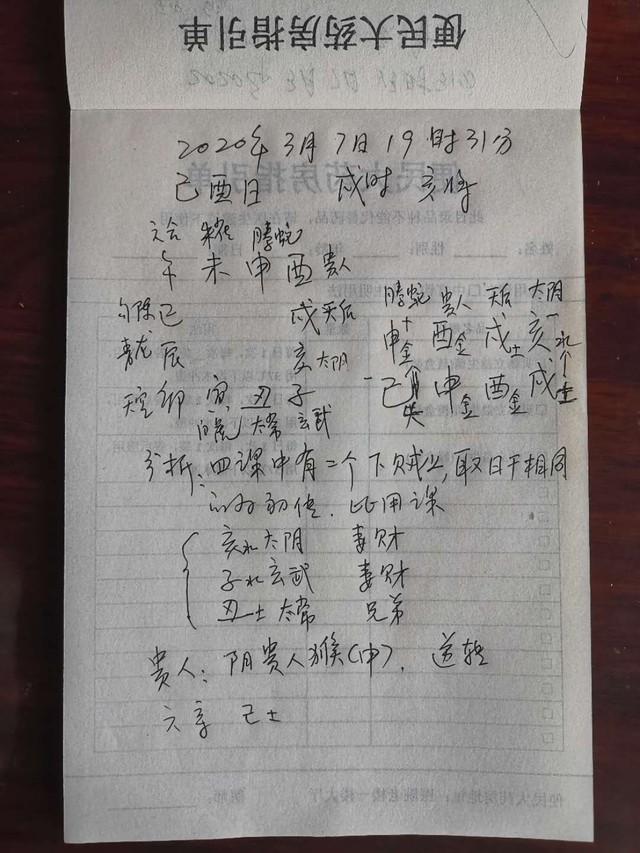 便民大药房指引单
2020年3月7日19时31分
己酉日 戌时 亥将
六合 朱雀 腾蛇
午 未 申 酉 贵人
勾陈 巳 戌 天后
青龙 辰 亥 太阴
天空 卯 寅 丑 子
白虎 太常 玄武
腾蛇 贵人 天后 太阴
申金 酉金 戌土 亥水
己 申金 酉金 戌土
分析:四课中有二个下贼上,取日干相同
的为初传.比用课
亥水太阴 妻财
子水玄武 妻财
丑土太常 兄弟
贵人:阴贵人猴(申).逆转
六亲 己土